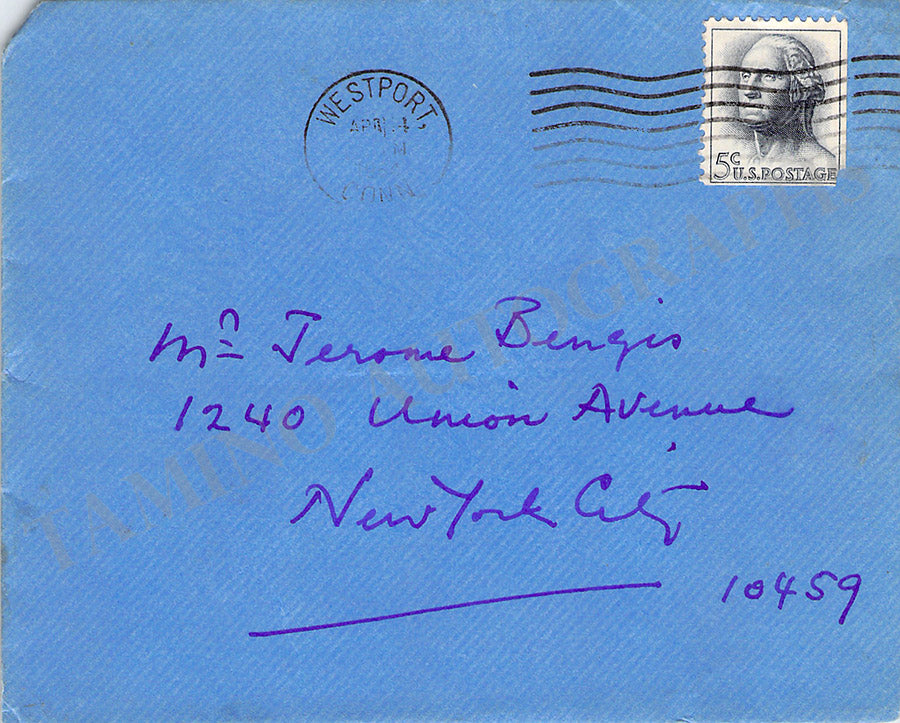 WESTPORT,
APR 4
CONN
5c
U.S. POSTAGE
Mr Jerome Bengis
1240 Union Avenue
New York City
10459
TAMINO AUTOGRAPHS